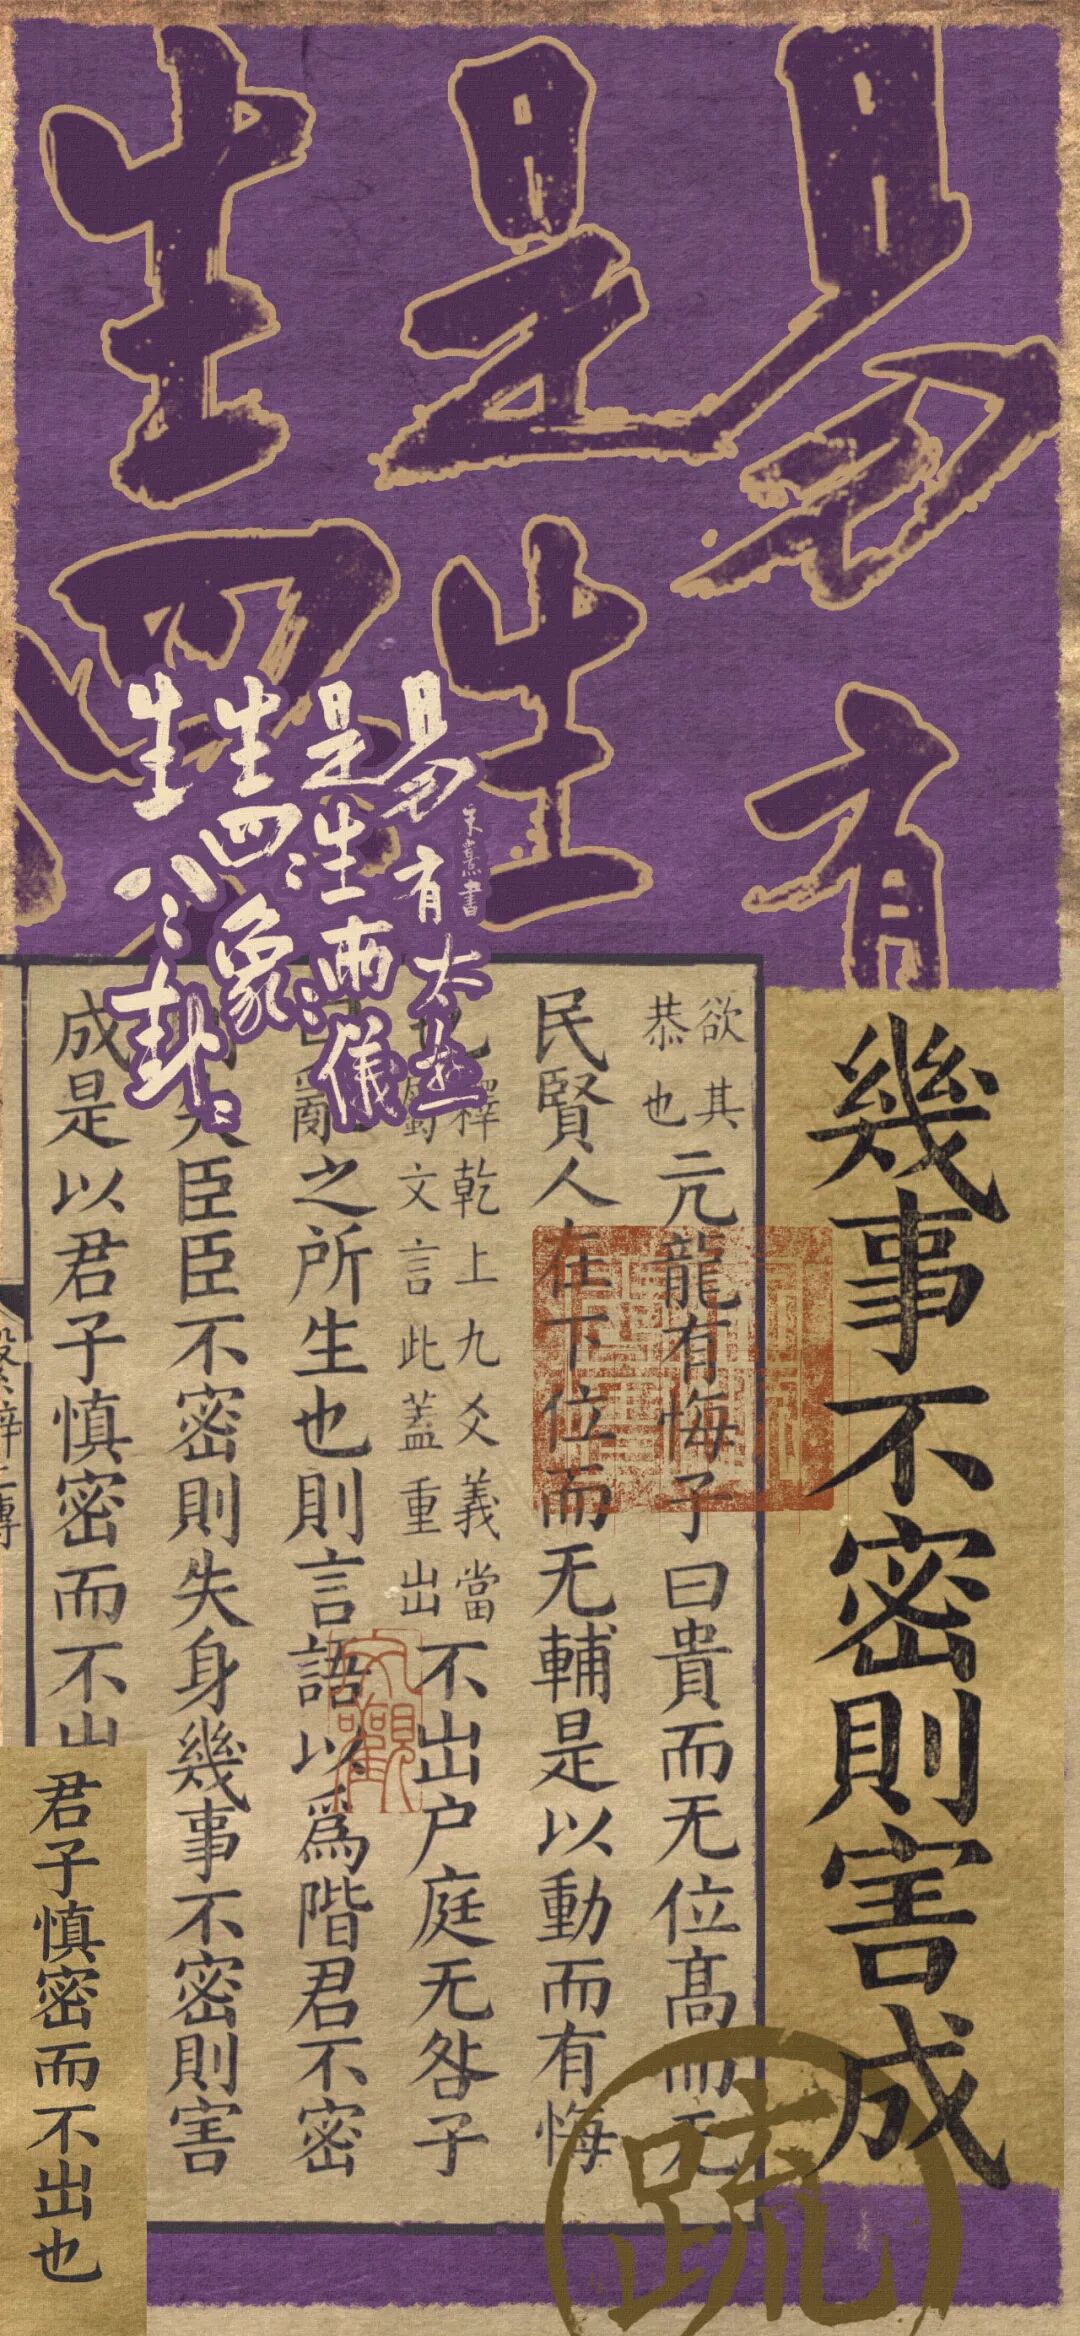 易有
是生
生四
朱熹書
易有太極
是生兩儀
生四象
生八卦
幾事不密則害成
欲其
恭也
亢龍有悔子曰貴而无位髙而无
民賢人在下位而无輔是以動而有悔
也釋乾上九爻義當
屬文言此蓋重出
不出户庭无咎子
曰亂之所生也則言語以爲階君不密
則失臣臣不密則失身幾事不密則害
成是以君子慎密而不出
君子慎密而不出也
疏